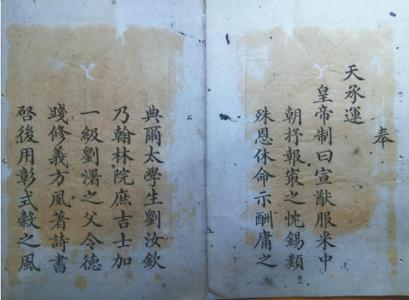 奉
天承運
皇帝制曰宣猷服采中
朝抒報冣之忱錫類
殊恩休命示酬庸之
典爾太學生劉汝欽
乃翰林院庶吉士加
一級劉濖之父令德
踐修義方夙著詩書
啓後用彰式穀之風